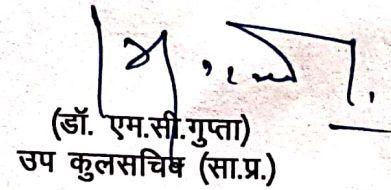 (डॉ. एम.सी.गुप्ता)
उप कुलसचिव (सा.प्र.)